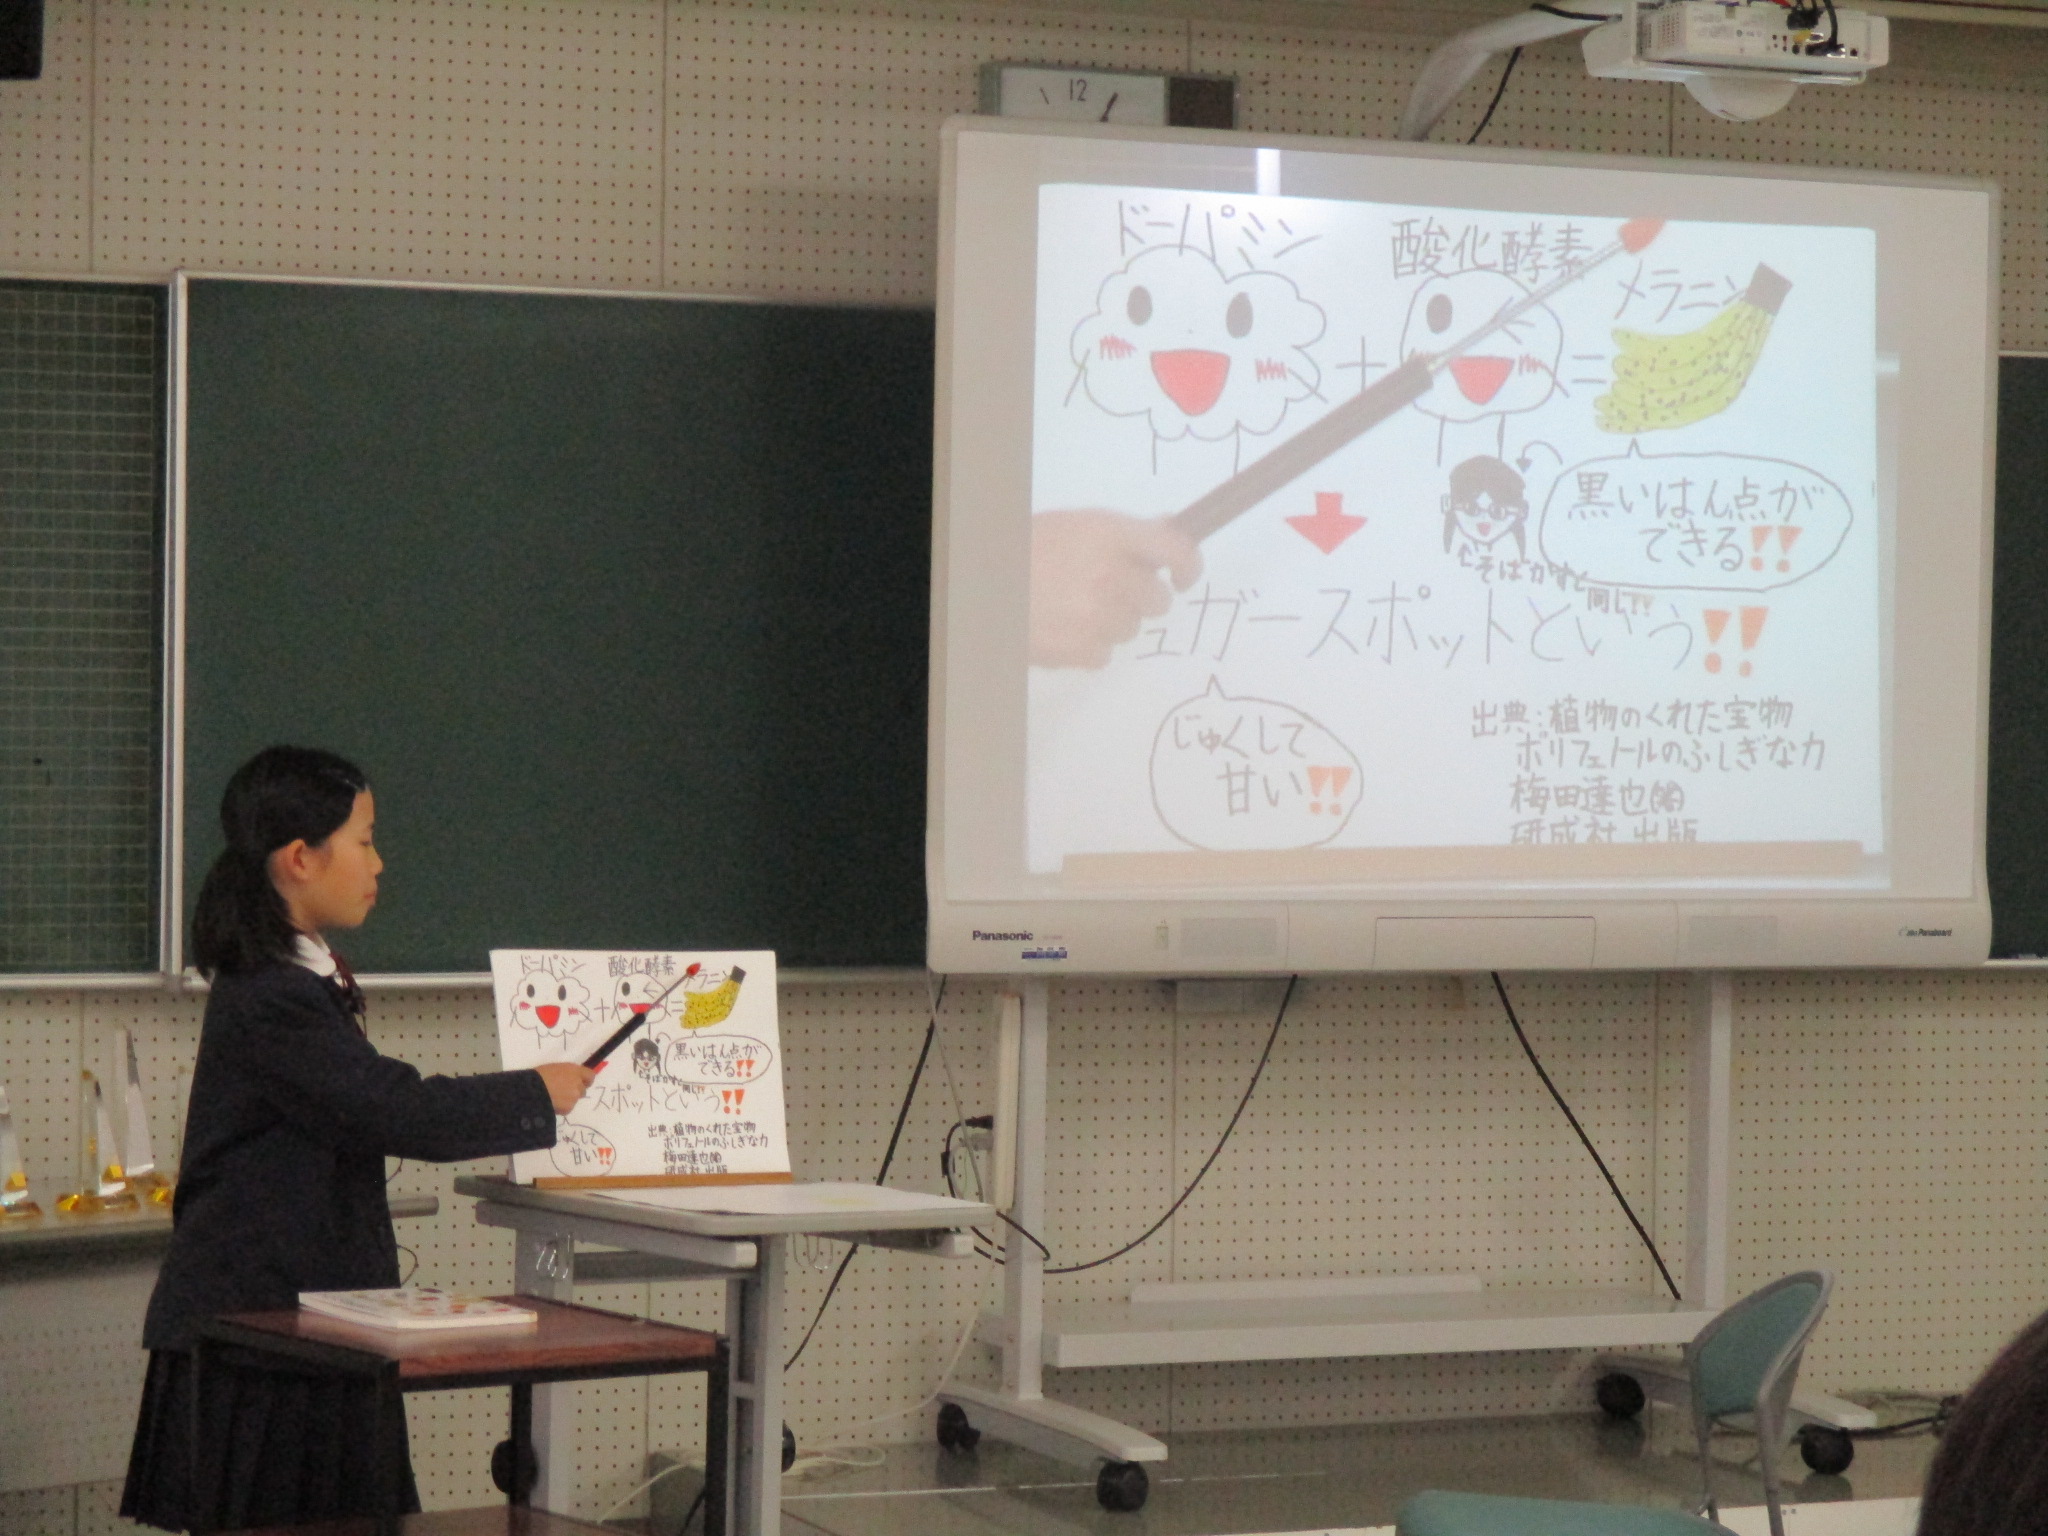 12
ドーパミン
酸化酵素
メラニン
+
=
黒いはん点が
できる!!
そばかすと
同じ!!
ュガースポットという!!
じゅくして
甘い!!
出典:植物のくれた宝物
ポリフェノールのふしぎな力
梅田達也
研成社 出版
Panasonic
Panaboard
ドーパミン
酸化酵素
メラニン
+
=
黒いはん点が
できる!!
そばかすと
同じ!!
スポットという!!
じゅくして
甘い!!
出典:植物のくれた宝物
ポリフェノールのふしぎな力
梅田達也
研成社 出版